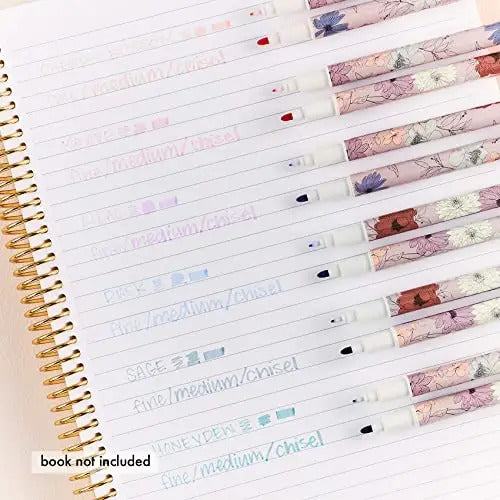 BLOSSOM
fine/medium/chisel
fine/medium/chisel
LILAC
fine/medium/chisel
fine/medium/chisel
SAGE
fine/medium/chisel
HONEYDEW
fine/medium/chisel
book not included